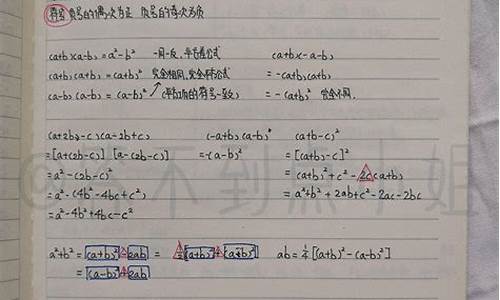 符号 负号的偶次为正 负号的奇次为负
(a+b)(a-b)=a²-b² 一同一反,平方差公式 (a+b)(-a-b)
(a+b)(a+b)=(a+b)² 完全相同,完全平方公式 =-(a+b)(a+b)
(a-b)(a-b)=(a-b)² (平方项的符号一致) =-(a+b)² 完全不同.
(a+2b-c)(a-2b+c) (-a+b)(a-b) (a+b-c)²
=[a+(2b-c)] [a-(2b-c)] =-(a-b)² =[(a+b)-c]²
=a²-(2b-c)² =(a+b)²+c²-2c(a+b)
=a²-(4b²-4bc+c²) =a²+b²+2ab+c²-2ac-2bc
=a²-4b²+4bc-c²
a²+b²=(a+b)²-2ab = ½(a+b)²+(a-b)² ab=¼[(a+b)²-(a-b)²]
=(a-b)²+2ab